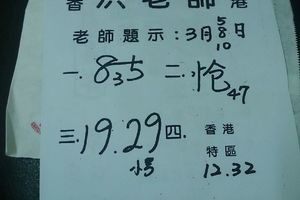 香洪老師港
老師題示：3月8日
5
10
一.835 二.怆
47
三.19.29 四.香港
特區
小号 12.32